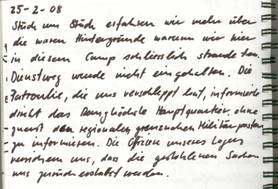 25-2-08
Stück um Stück erfahren wir mehr über
die waren Hintergründe warum wir hier
in diesem Camp schliesslich strandeten.
Dienstweg wurde nicht eingehalten. Die
Patrouille, die uns verschleppt hat, informierte
direkt das Hauptquartier ohne
zuerst den regionalen Militärposten
zu informieren. Die Offiziere unseres Lagers
versichern uns, dass die gestohlenen Sachen
uns zurückerstattet werden.